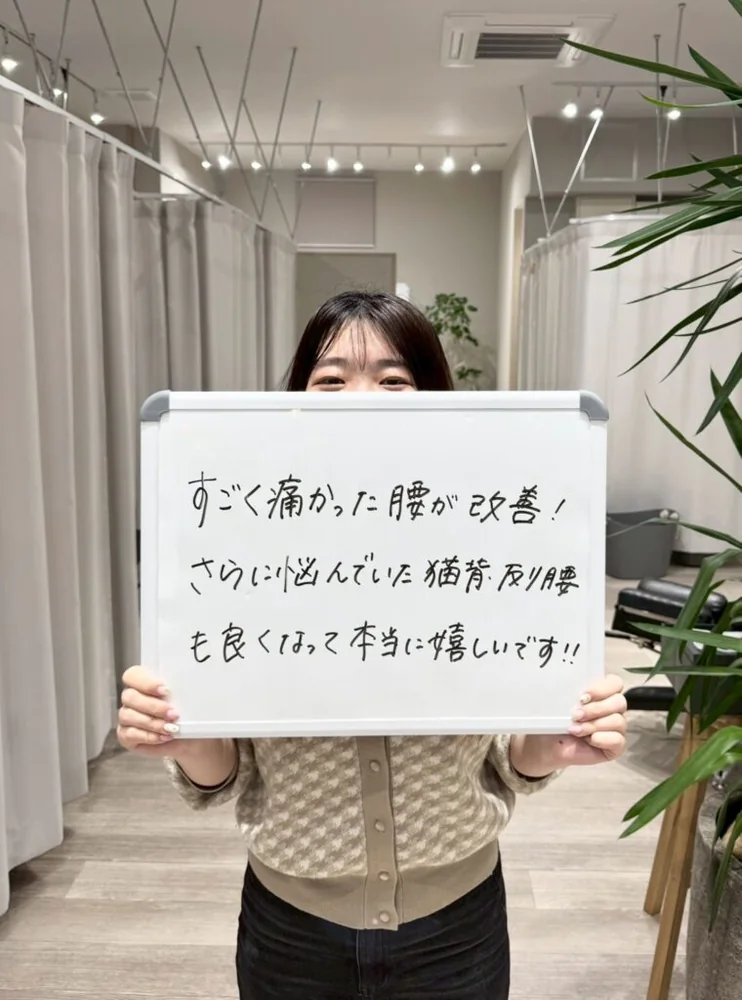 すごく痛かった腰が改善！
さらに悩んでいた猫背・反り腰
も良くなって本当に嬉しいです!!